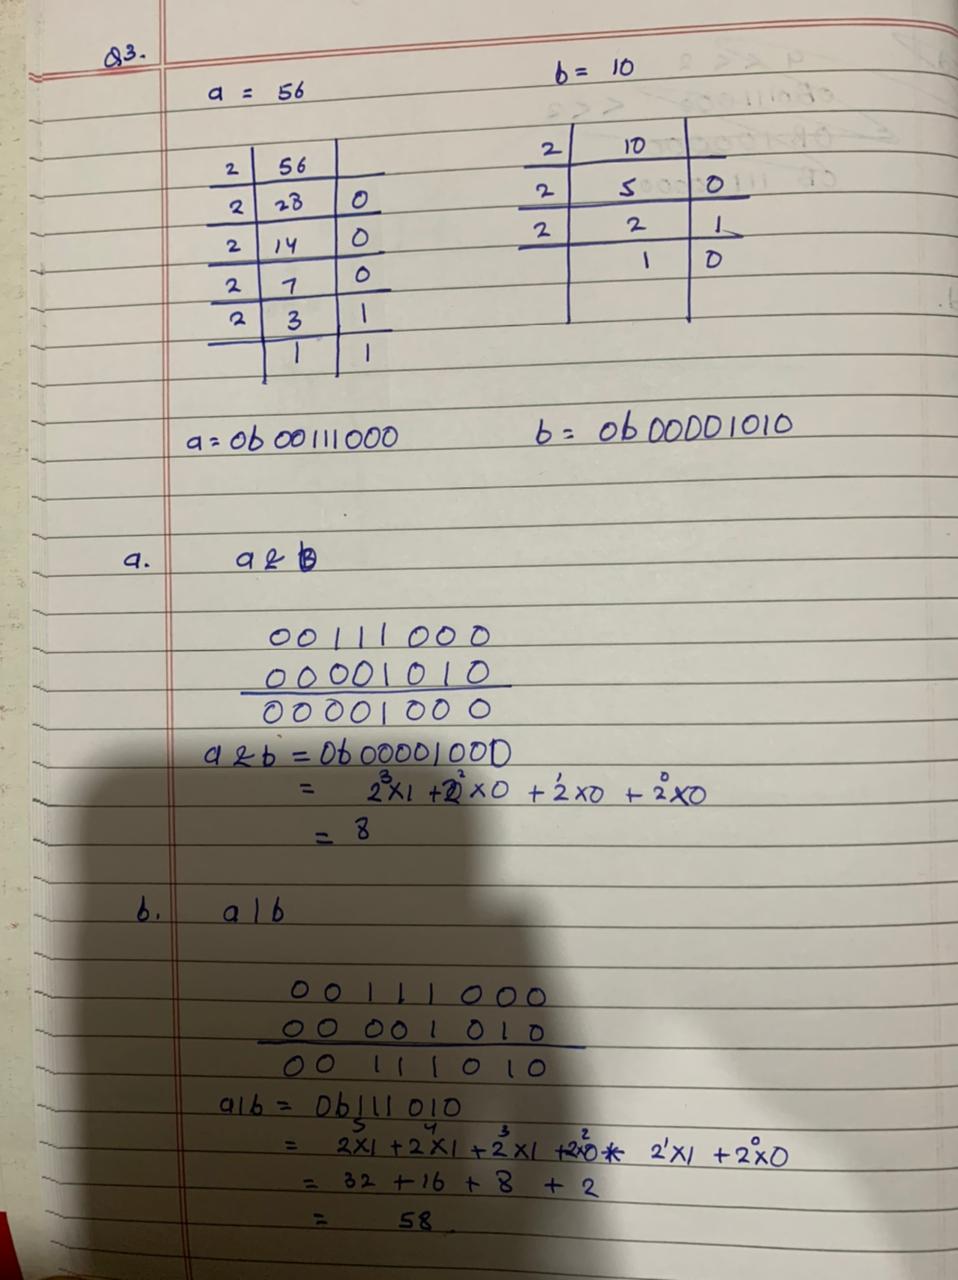 Q3.
a = 56
b = 10
2 56
2 28 0
2 14 0
2 7 0
2 3 1
1 1
2 10
2 5 0
2 2 1
1 0
a = 0b 00111000
b = 0b 00001010
a. a & b
00111000
00001010
00001000
a & b = 0b00001000
= 2³×1 + 2²×0 + 2¹×0 + 2⁰×0
= 8
b. a | b
00111000
00001010
00111010
a|b = 0b111010
= 2⁵×1 + 2⁴×1 + 2³×1 + 2²×0 + 2¹×1 + 2⁰×0
= 32 + 16 + 8 + 2
= 58